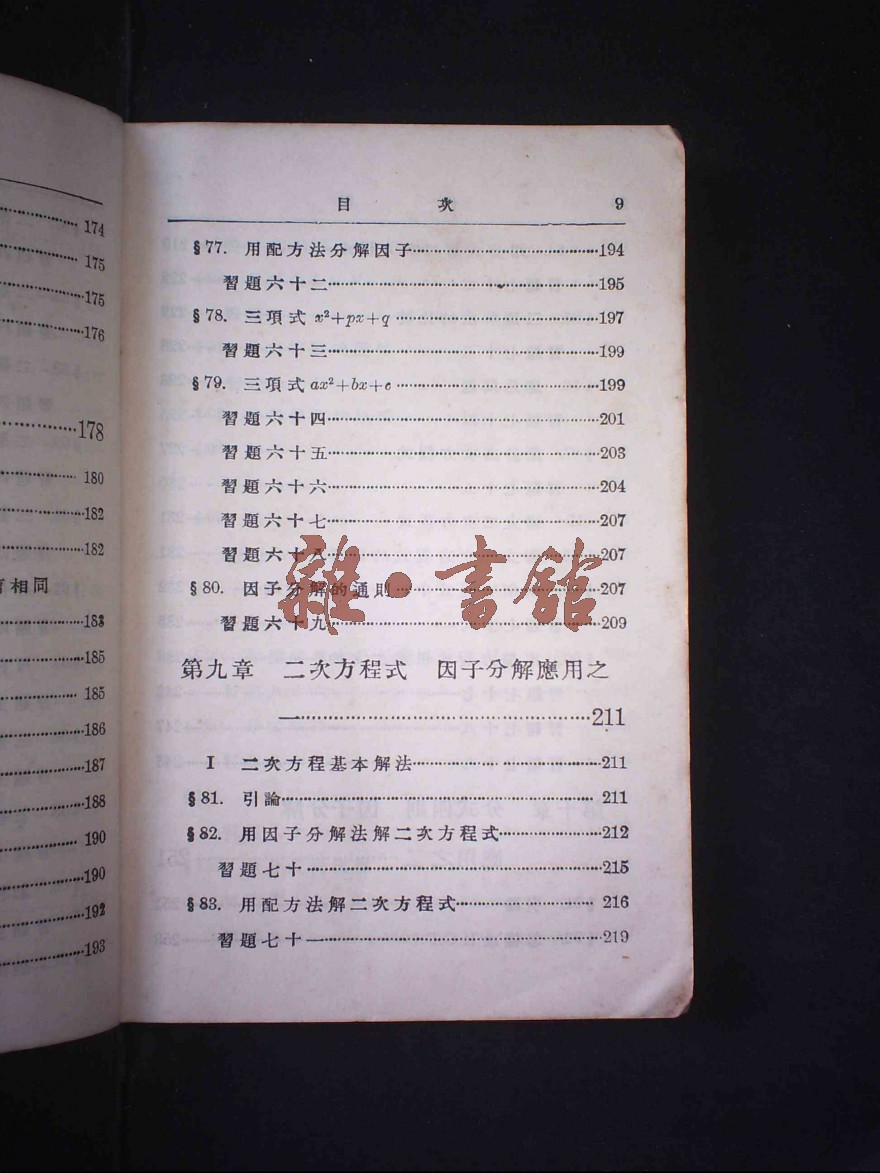 174
175
175
176
178
180
182
182
相同
183
185
185
186
187
188
190
190
192
193
目 次 9
§77. 用配方法分解因子…194
習題六十二…195
§78. 三項式 x²+px+q…197
習題六十三…199
§79. 三項式 ax²+bx+c…199
習題六十四…201
習題六十五…203
習題六十六…204
習題六十七…207
習題六十八…207
§80. 因子分解的通則…207
習題六十九…209
第九章 二次方程式 因子分解應用之
一…211
I 二次方程基本解法…211
§81. 引論…211
§82. 用因子分解法解二次方程式…212
習題七十…215
§83. 用配方法解二次方程式…216
習題七十一…219
雜·書館